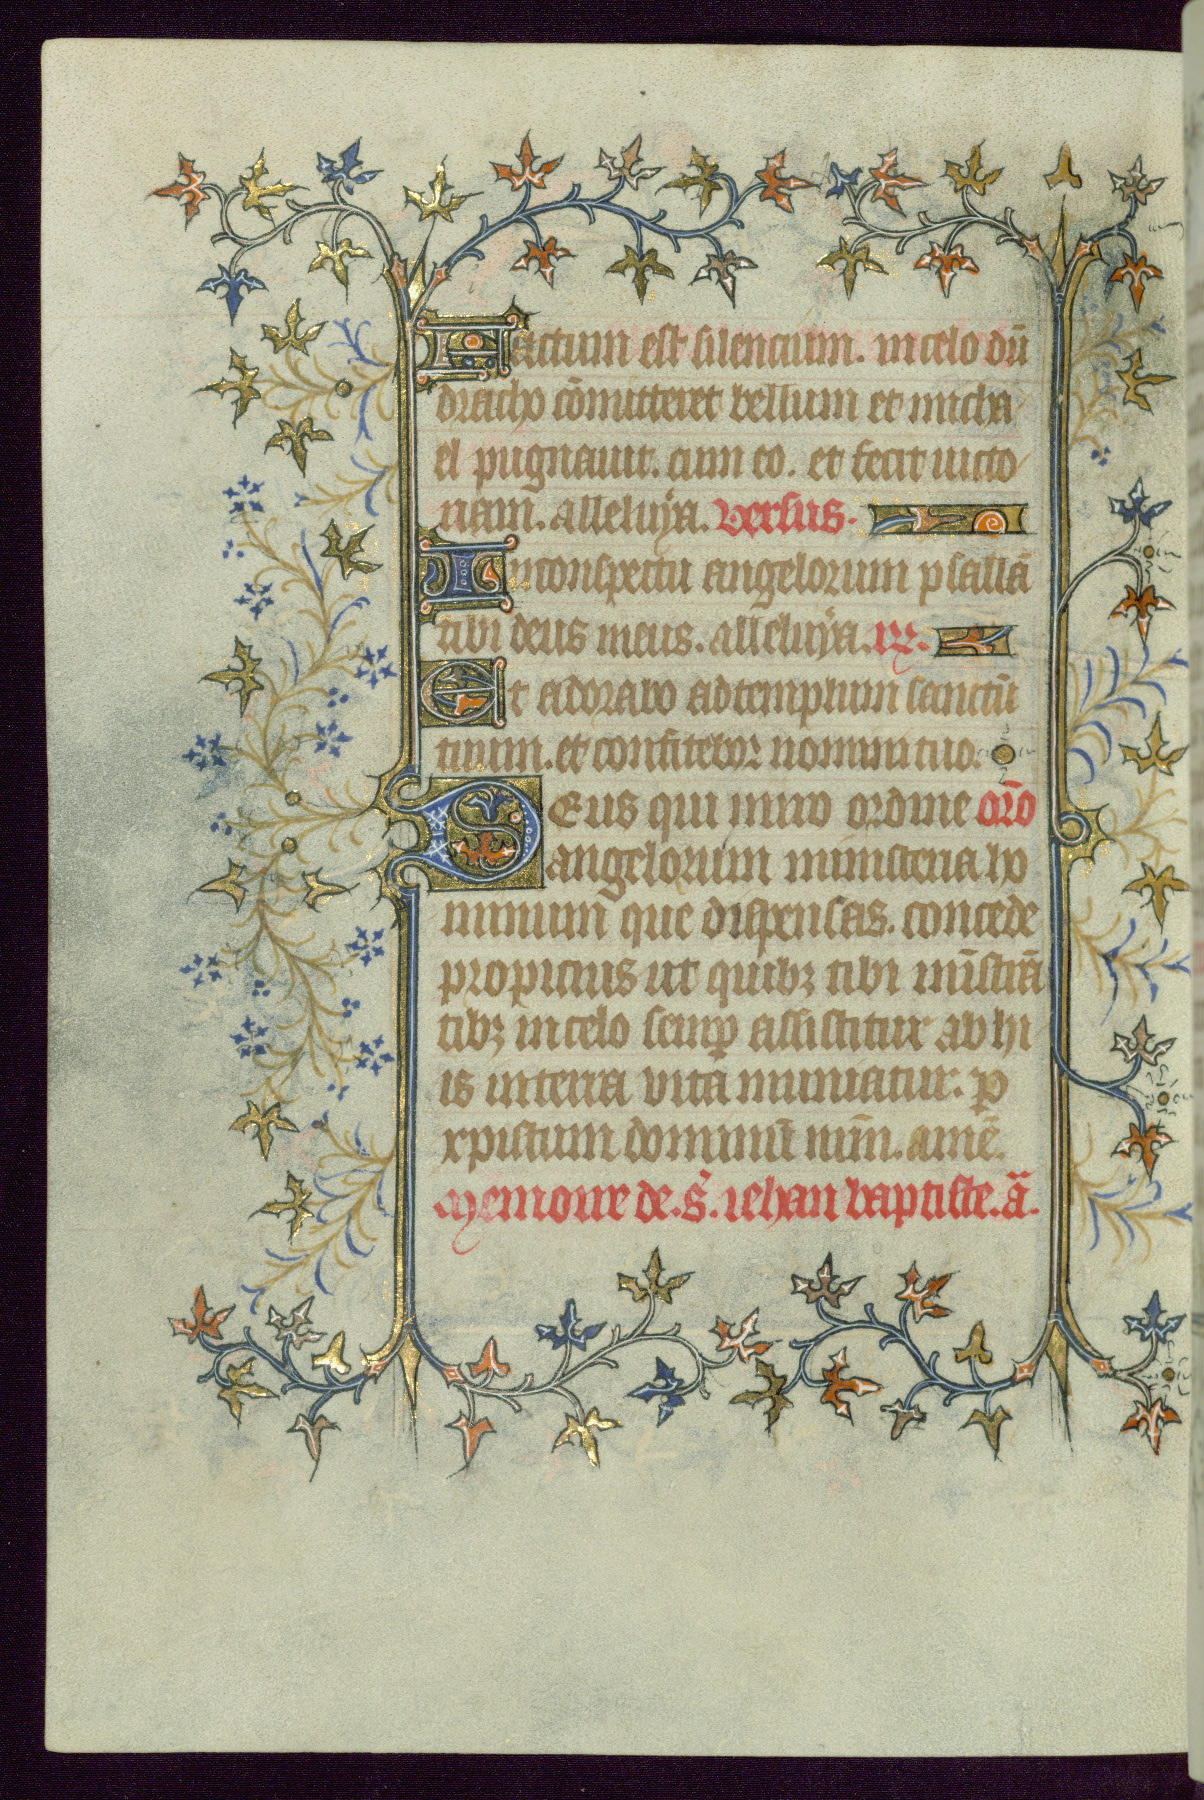 Factum est silencium. in celo dū
dracho cōmitteret bellum et micha
el pugnauit. cum eo. et fecit uicto
riam. alleluÿa. versus.
In conspectu angelorum psallā
tibi deus meus. alleluÿa. R̃.
Et adorabo ad templum sanctū
tuum. et confitebor nomini tuo.
Deus qui miro ordine orō
angelorum ministeria ho
minum que dispensas. concede
propicius ut quibꝫ tibi mīstrā
tibꝫ in celo semꝑ assistitur ab hi
is in terra vita muniatur. ꝑ
xpistum dominū nrm̄. amē.
Memoire de. s̄. iehan baptiste. ā.